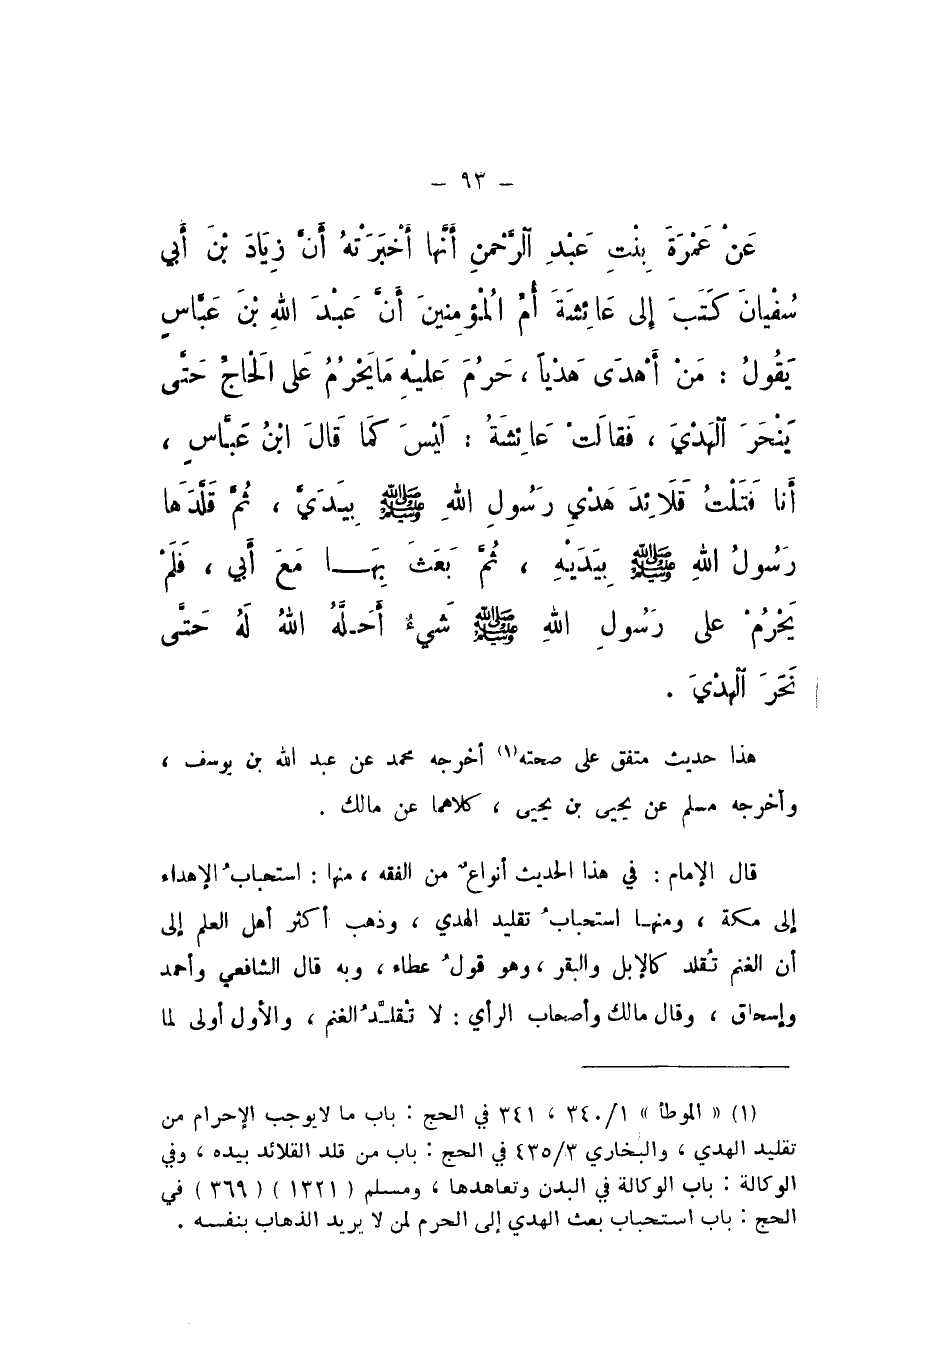 – ٩٣ –
عَنْ عَمْرَةَ بِنْتِ عَبْدِ ٱلرَّحْمنِ أَنَّها أَخْبَرَتْهُ أَنَّ زِيَادَ بْنَ أَبي
سُفْيانَ كَتَبَ إِلى عَائِشَةَ أُمِّ المُؤمِنينَ أَنَّ عَبْدَ اللهِ بْنَ عَبَّاسٍ
يَقُولُ : مَنْ أَهْدَى هَدْياً ، حَرُمَ عَليْهِ مَايَحْرُمُ عَلى الحَاجِّ حَتَّى
يَنْحَرَ ٱلهَدْيَ ، فَقالَتْ عَائِشَةُ : لَيْسَ كَمَا قَالَ ابْنُ عَبَّاسٍ ،
أَنا فَتَلْتُ قَلَائِدَ هَدْيِ رَسُولِ اللهِ ﷺ بِيَدَيَّ ، ثُمَّ قَلَّدَها
رَسُولُ اللهِ ﷺ بِيَدَيْهِ ، ثُمَّ بَعَثَ بِهَـــا مَعَ أَبي ، فَلَمْ
يَحْرُمْ على رَسُولِ اللهِ ﷺ شَيءٌ أَحَـلَّهُ اللهُ لَهُ حَتَّى
نَحَرَ ٱلهدْيَ .
هذا حديث متفق على صحته(١) أخرجه محمد عن عبد الله بن يوسف ،
وأخرجه مسلم عن يحيى بن يحيى ، كلاهما عن مالك .
قال الإمام : في هذا الحديث أنواعٌ من الفقه ، منها : استحبابُ الإهداء
إلى مكة ، ومنهـا استحبابُ تقليد الهدي ، وذهب أكثر أهل العلم إلى
أن الغنم تُقلد كالإبل والبقر ، وهو قولُ عطاء ، وبه قال الشافعي وأحمد
وإسحاق ، وقال مالك وأصحاب الرأي : لا تُقلـَّدُ الغنم ، والأول أولى لما
(١) « الموطأ » ٣٤٠/١ ، ٣٤١ في الحج : باب ما لايوجب الإحرام من
تقليد الهدي ، والبخاري ٤٣٥/٣ في الحج : باب من قلد القلائد بيده ، وفي
الوكالة : باب الوكالة في البدن وتعاهدها ، ومسلم ( ١٣٢١ ) ( ٣٦٩ ) في
الحج : باب استحباب بعث الهدي إلى الحرم لمن لا يريد الذهاب بنفسه .